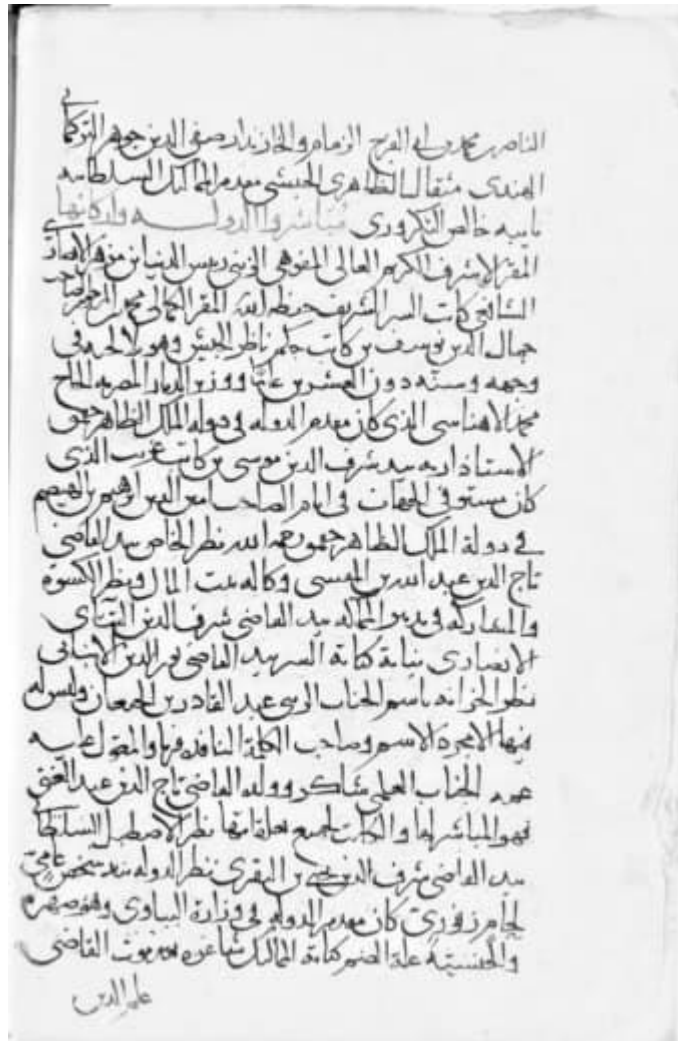 الناصر محمد بن ابي الفرج الزمام والخازندار صفي الدين جوهر التركماني
الهندي مثقال الظاهري الحبشي مقدم المماليك السلطانيه
نايبه خالص التكروري مباشروا الدولـــه واركانها
المقر الاشرف الكريم العالي المفوهي الزيني رييس الدنيا بن مزهر الانصاري
الشافعي كاتب السر الشريف حرظه الله المقر الكمالي محمد بن المرحوم صاحب
جمال الدين يوسف بن كاتب جكم ناظر الجيش وهو لا لحيه في
وجهه وسنه دون العشرين عاما ووزير الديار المصريه الحاج
محمد الاهناسي الذي كان مقدم الدوله في دوله الملك الظاهر جقمق
الاستاذاريه بيد شرف الدين موسى بن كاتب غريب الذي
كان مستوفي الجهات في ايام الصاحب امين الدين ابرهيم بن الهيصم
في دولة الملك الظاهر جقمق رحمه الله نظر الخاص بيد القاضي
تاج الدين عبد الله بن المقسي وكاله بيت المال ونظر الكسوة
والمشاركه في تدبير المملكه بيد القاضي شرف الدين التتاي
الانصاري نيابة كتابة السر بيد القاضي نور الدين الانبابي
نظر الخزانه باسم الجناب الزيني عبد القادر بن الجمعان وليس له
فيها الا مجرد الاسم وصاحب الكلمة النافذه فيها والمعول عليه
عمه الجناب العلمي شاكر وولده القاضي تاج الدين عبد الغني
فهو المباشر لها والكاتب لجميع تعلقاتها نظر الاصطبل السلطاني
بيد القاضي شرف الدين يحيى بن البقري نظر الدوله بيد شخص عامي
لحام زفوري كان مقدم الدوله في وزارة البباوي وهو صهره
والجنسيه علة الضم كتابة المماليك شاغره بموت القاضي
علم الدين